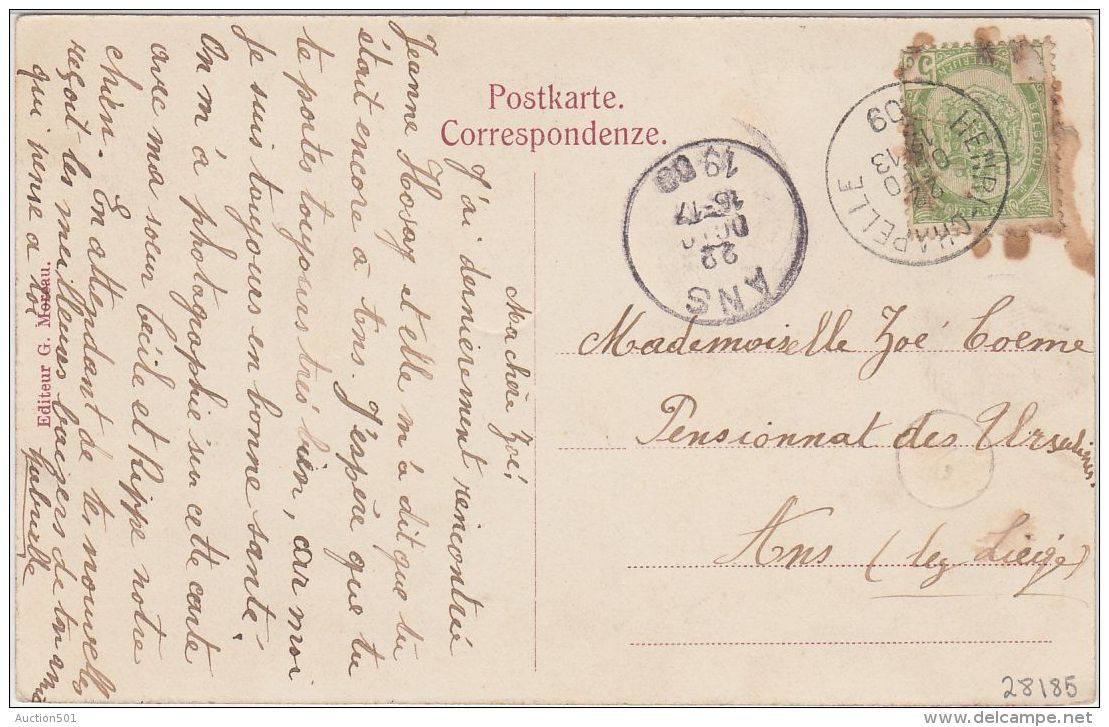 Postkarte.
Correspondenze.
Ma chère Zoé!
J'ai dernièrement rencontrée
Jeanne Hosay et elle m'a dit que tu
était encore à Ans. J'espère que tu
te portes toujours très bien, car moi
je suis toujours en bonne santé.
On m'à photographié sur cette carte
avec ma sœur Cécile et Pippe notre
chien. En attendant de tes nouvelles
reçoit les meilleurs baizers de ton amie
qui pense a toi
Gabrielle
Editeur G. Moreau.
HENRI-CHAPELLE
13
09
ANS
22
16-17
19 09
BELGIQUE
5
Mademoiselle Zoé Coeme
Pensionnat des Ursulines.
Ans (lez Liége)
28185
Auction501
delcampe.net